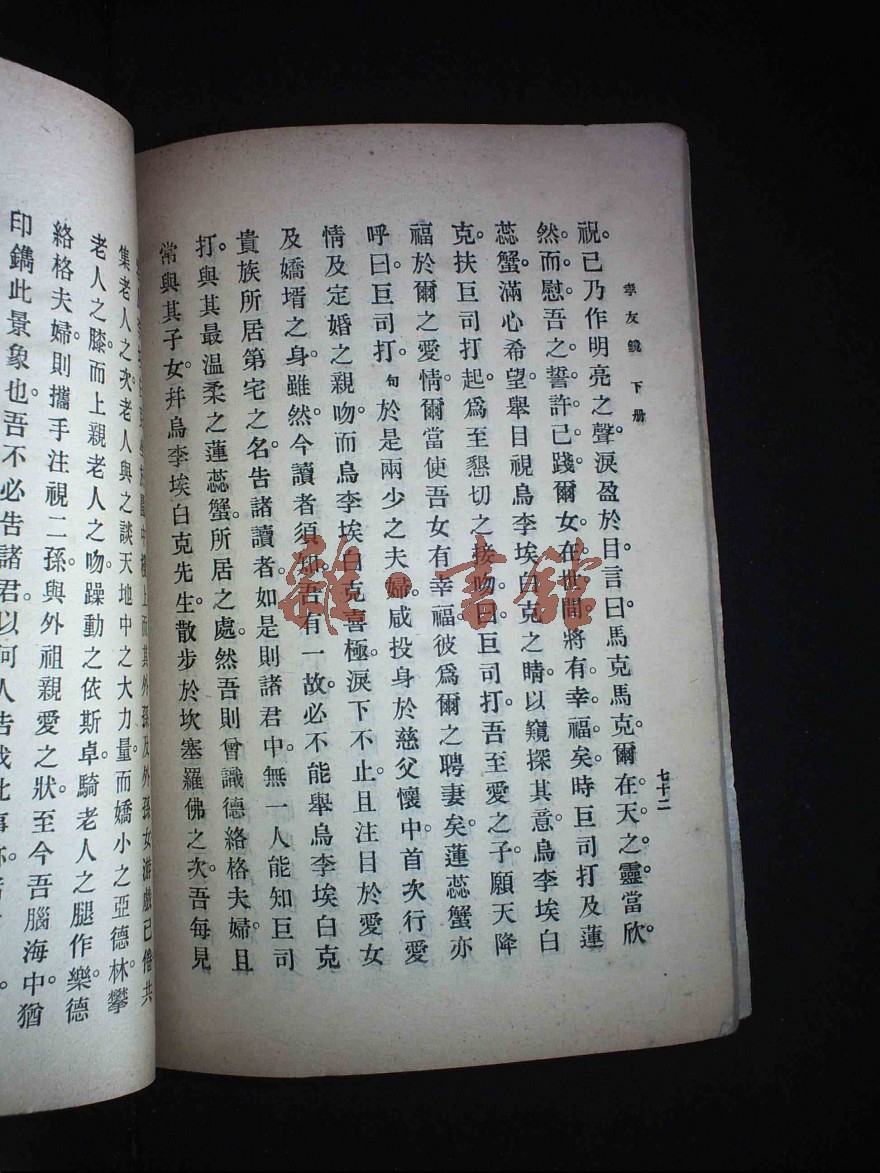 孝友鏡 下册
七十二
祝。已乃作明亮之聲。淚盈於目。言曰馬克馬克爾在天之靈當欣。
然而慰吾之誓許已踐。爾女在世間將有幸福矣。時巨司打及蓮
蕊蟹滿心希望舉目視烏李埃白克之睛。以窺探其意。烏李埃白
克。扶巨司打起。爲至懇切之接吻。曰巨司打。吾至愛之子。願天降
福於爾之愛情。爾當使吾女有幸福。彼爲爾之聘妻矣。蓮蕊蟹亦
呼曰巨司打。句於是兩少之夫婦。咸投身於慈父懷中。首次行愛
情及定婚之親吻。而烏李埃白克喜極淚下不止。且注目於愛女
及嬌壻之身。雖然今讀者須知。吾有一故。必不能舉烏李埃白克
貴族所居第宅之名。告諸讀者。如是則諸君中。無一人能知巨司
打。與其最溫柔之蓮蕊蟹。所居之處。然吾則曾識德絡格夫婦。且
常與其子女。并烏李埃白克先生。散步於坎塞羅佛之次。吾每見
上而其外孫及外孫女游戲已倦。共
集老人之次。老人與之談天地中之大力量。而嬌小之亞德林。攀
老人之膝。而上親老人之吻。躁動之依斯卓。騎老人之腿。作樂德
絡格夫婦則攜手注視二孫。與外祖親愛之狀。至今吾腦海中。猶
印鐫此景象也。吾不必告諸君。以何人告我此事
雜·書館